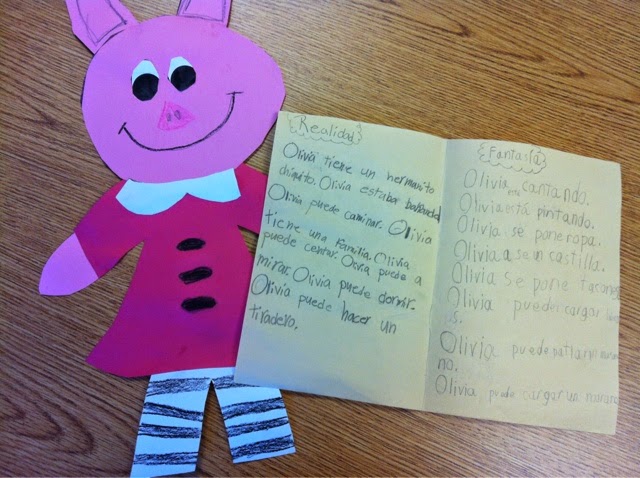 Realidad
Olivia tiene un hermanito
chiquito. Olivia estaba
Olivia puede caminar. Olivia
tiene una familia. Olivia
puede centar. Olivia puede a
mirar. Olivia puede dormir.
Olivia puede hacer un
tiradero.
Fantasía
Olivia está cantando.
Olivia está pintando.
Olivia se pone ropa.
Olivia a se un castillo.
Olivia se pone tacones
Olivia puede cargar
s.
Olivia puede
no.
Olivia puede cargar un